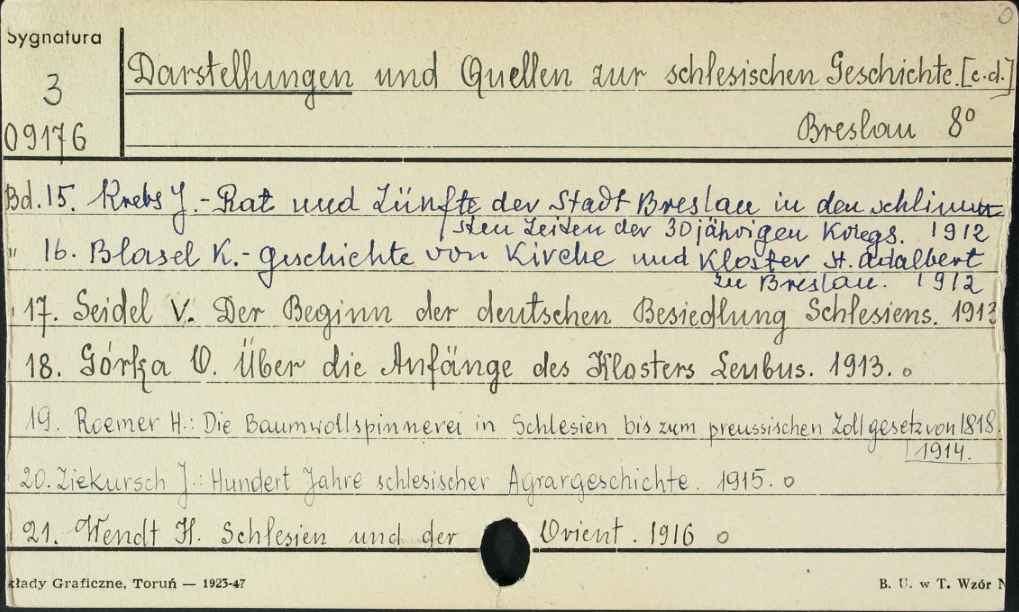 Sygnatura
3
09176
Darstellungen und Quellen zur schlesischen Geschichte. [c.d.]
Breslau 8°
Bd. 15. Krebs J. - Rat und Zünfte der Stadt Breslau in den schlimm
sten Zeiten der 30 jährigen Kriegs. 1912
" 16. Blasel K. - Geschichte von Kirche und Kloster St. Adalbert
zu Breslau. 1912
17. Seidel V. Der Beginn der deutschen Besiedlung Schlesiens. 1913
18. Górka O. Über die Anfänge des Klosters Leubus. 1913. o
19. Roemer H.: Die Baumwollspinnerei in Schlesien bis zum preussischen Zollgesetz von 1818.
1914.
20. Ziekursch J.: Hundert Jahre schlesischer Agrargeschichte. 1915. o
21. Wendt H. Schlesien und der Orient. 1916 o
kłady Graficzne, Toruń — 1923-47
B. U. w T. Wzór N